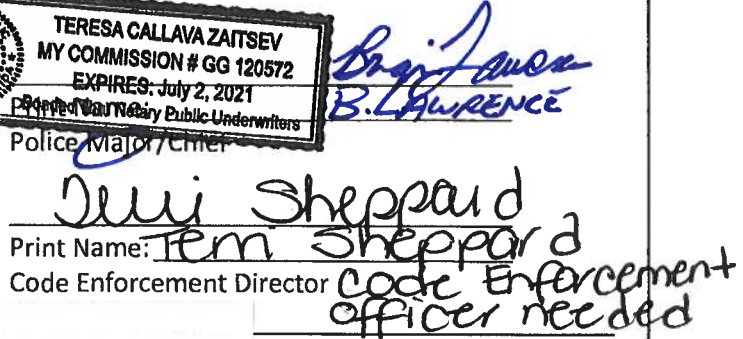 TERESA CALLAVA ZAITSEV
MY COMMISSION # GG 120572
EXPIRES: July 2, 2021
Bonded Thru Notary Public Underwriters
B. LAWRENCE
Print Name:
Police Major/Chief
Terri Sheppard
Print Name: Terri Sheppard
Code Enforcement Director Code Enforcement
officer needed